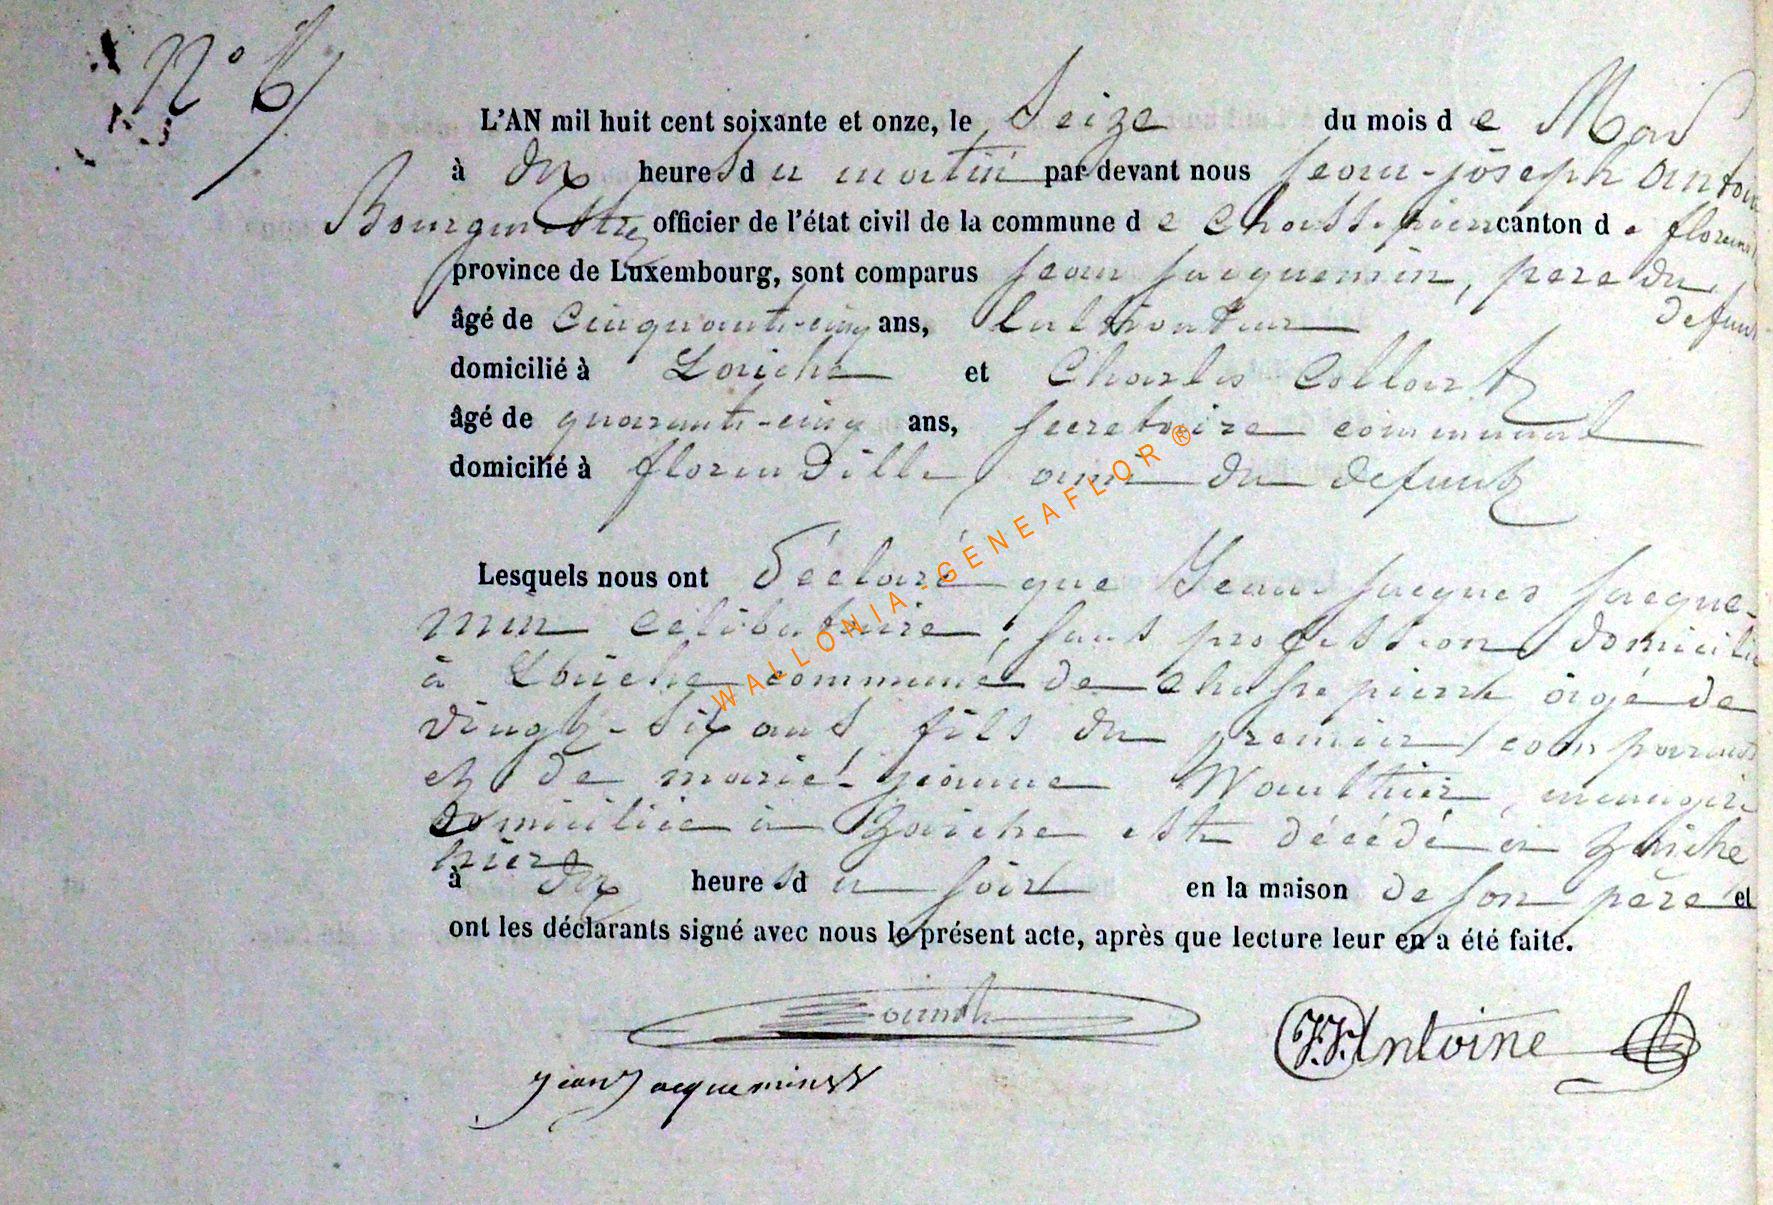 N° 6
L'AN mil huit cent soixante et onze, le Seize du mois de Mars
à dix heures du matin par devant nous Jean-Joseph Antoine
Bourgmestre officier de l'état civil de la commune de Chassepierre canton de florenville
province de Luxembourg, sont comparus Jean Jacquemin, pere du
defunt
âgé de Cinquante-cinq ans, Cultivateur
domicilié à Laiche et Charles Collart
âgé de quarante-cinq ans, Secretaire communal
domicilié à florenville, ami du defunt
Lesquels nous ont déclaré que Jean Jacques Jacque-
min célibataire, sans profession domicilié
à Laiche commune de chassepierre âgé de
vingt-six ans, fils du premier comparant
et de marie-jeanne Wauthier, menagère
domiciliée à Laiche est décédé à Laiche
hier
à dix heures du soir en la maison de son père et
ont les déclarants signé avec nous le présent acte, après que lecture leur en a été faite.
J.J. Antoine
jean Jacquemin
WALLONIA-GENEAFLOR®